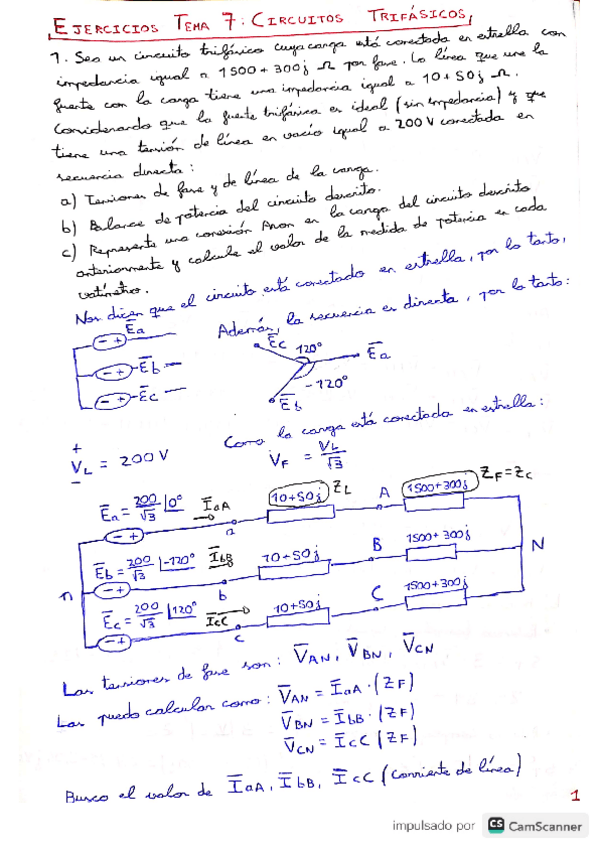 EJERCICIOS TEMA 7: CIRCUITOS TRIFÁSICOS,
1. Sea un circuito trifásico cuya carga está conectada en estrella con
impedancia igual a 1500+300j Ω por fase. La línea que une la
fuente con la carga tiene una impedancia igual a 10+50j Ω.
Considerando que la fuente trifásica es ideal (sin impedancia) y que
tiene una tensión de línea en vacío igual a 200 V conectada en
secuencia directa:
a) Tensiones de fase y de línea de la carga.
b) Balance de potencia del circuito descrito.
c) Represente una conexión Aron en la carga del circuito descrito
anteriormente y calcule el valor de la medida de potencia en cada
vatímetro.
Nos dicen que el circuito está conectado en estrella, por lo tanto,
Además, la secuencia es directa, por lo tanto:
Ēa
- +
- + Ēb
- + Ēc
Ēc 120° Ēa
-120°
Ēb
Como la carga está conectada en estrella:
+
VL = 200 V
-
VF = VL/√3
Ēa = 200/√3 |0° ĪaA 10+50j ZL A 1500+300j ZF=Zc
- + a
Ēb = 200/√3 |-120° ĪbB 10+50j B 1500+300j N
n - + b
Ēc = 200/√3 |120° ĪcC 10+50j C 1500+300j
- + c
Las tensiones de fase son: V̄AN, V̄BN, V̄CN
Las puedo calcular como: V̄AN = ĪaA · (ZF)
V̄BN = ĪbB · (ZF)
V̄CN = ĪcC (ZF)
Busco el valor de ĪaA, ĪbB, ĪcC (corriente de línea)
1
impulsado por CS CamScanner